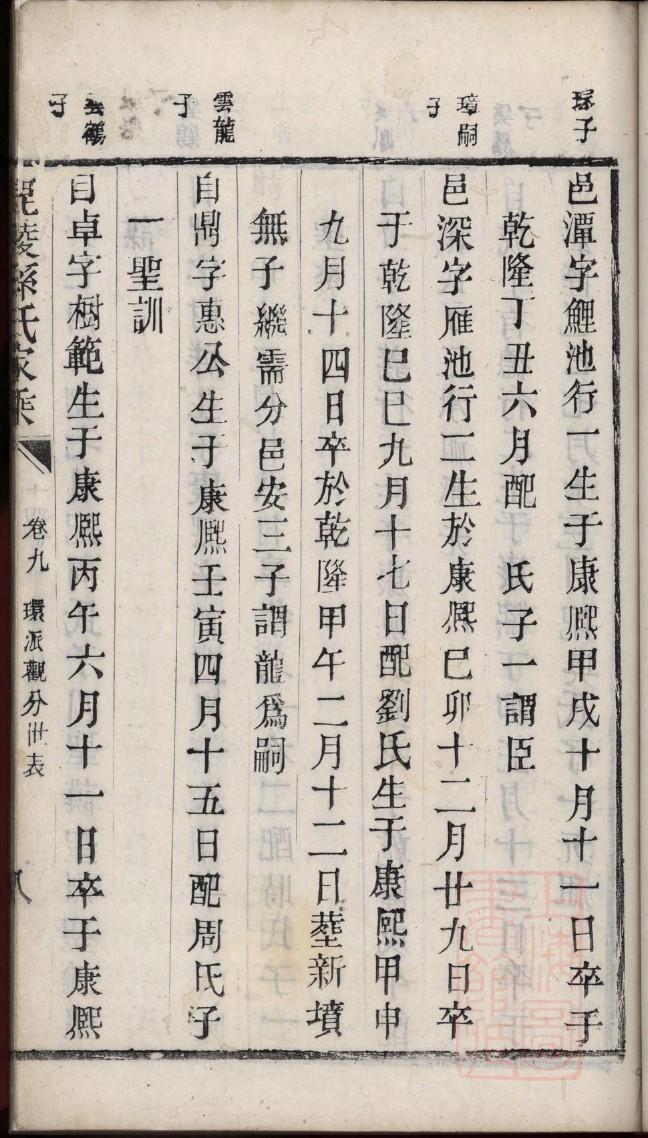 琮子
邑潭字鯉池行一生于康熈甲戌十月十一日卒于
乾隆丁丑六月配　氏子一謂臣
璋嗣子
邑深字雁池行二生於康熈巳卯十二月廿九日卒
于乾隆巳巳九月十七日配劉氏生于康熈甲申
九月十四日卒於乾隆甲午二月十二日塟新墳
無子繼需分邑安三子謂龍爲嗣
雲龍子
自鼎字惠公生于康熈壬寅四月十五日配周氏子
一聖訓
雲鶴子
自卓字樹範生于康熈丙午六月十一日卒于康熈
毘陵孫氏家乘
卷九　環派觀分世表
八